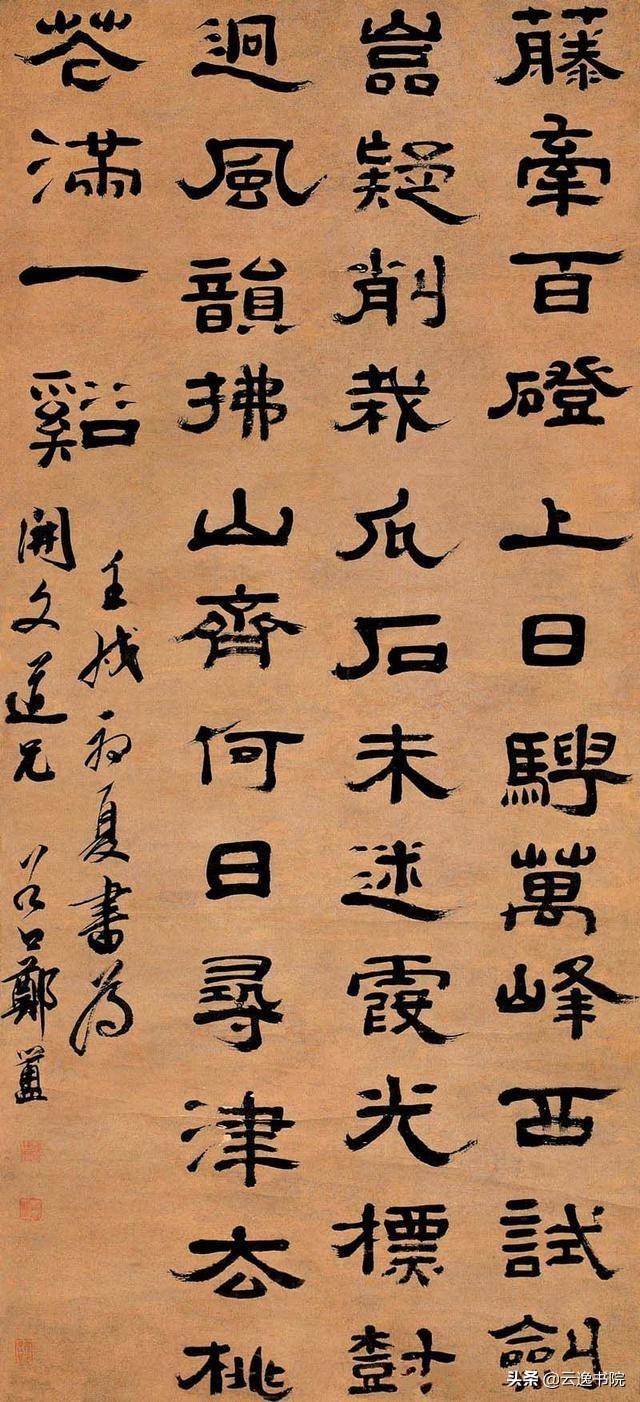 藤牽百磴上日騁萬峰西試劍
嵒疑削栽瓜石未迷霞光標尌
迥風韻拂山齊何日尋津去桃
花滿一谿
壬戌初夏書為
開文道兄 谷口鄭簠
头条 @云逸书院